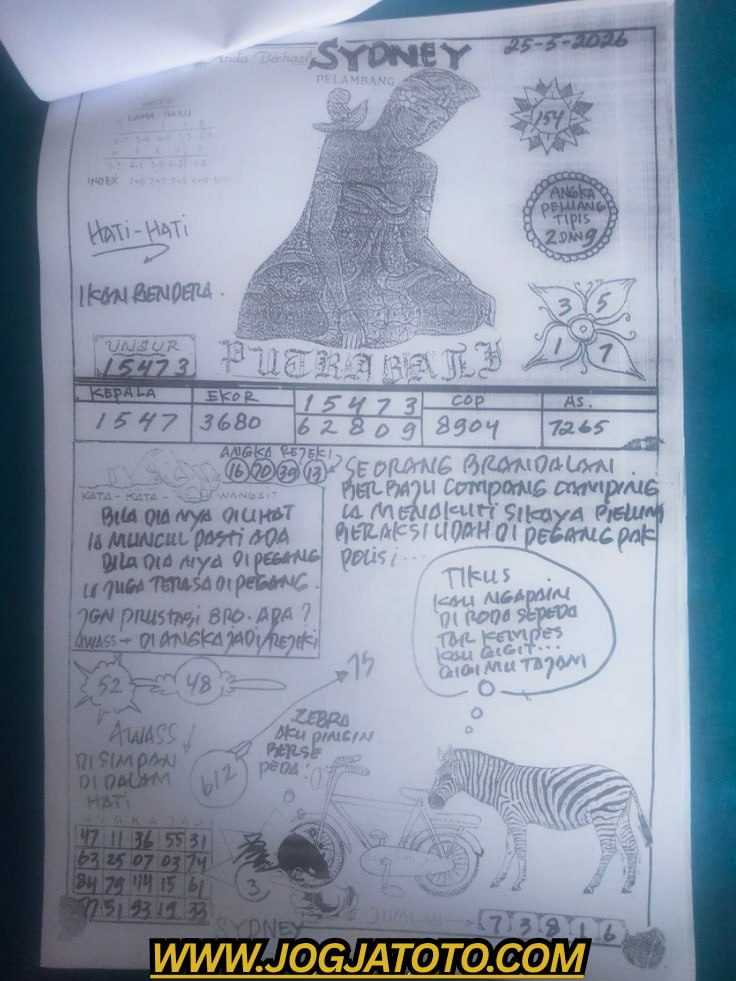 Anda Berhasil SYDNEY
25-5-2026
PELAMBANG
LAMA BARU
INDEX
154
HATI-HATI
ANGKA
PELUANG
TIPIS
2 DAN 9
IKAN BENDERA.
3 5
1 7
UNSUR
15473
PUTRA BALI
KEPALA EKOR 15473 COP AS.
1547 3680 62809 8904 7265
ANGKA REJEKI
16 70 39 13
KATA - KATA - WANGSIT
BILA DIA NYA DILIHAT
IA MUNCUL PASTI ADA
BILA DIA NYA DIPEGANG
IA JUGA TERASA DIPEGANG.
JGN PRUSTASI BRO. APA?
AWASS → DI ANGKA JADI/REJEKI
SEORANG BRANDALAN
BERBAJU COMPANG CAMPING
IA MENAKUTI SIKAYA
BERAKSI UDAH DI PEGANG PAK
POLISI...
TIKUS
KAU NGAPAIN
DI RODA SEPEDA
TAR KEMPES
KAU GIGIT...
GIGIMU TAJAM
52 48
75
AWASS
DI SIMPAN
DI DALAM
HATI
612
ZEBRA
AKU PINGIN
BERSE
PEDA.
ANGKA JADI
47 11 36 55 31
63 25 07 03 74
84 79 44 15 61
77 51 93 19 33
3
SYDNEY
JUMLAH → 7 3 8 1 6
WWW.JOGJATOTO.COM